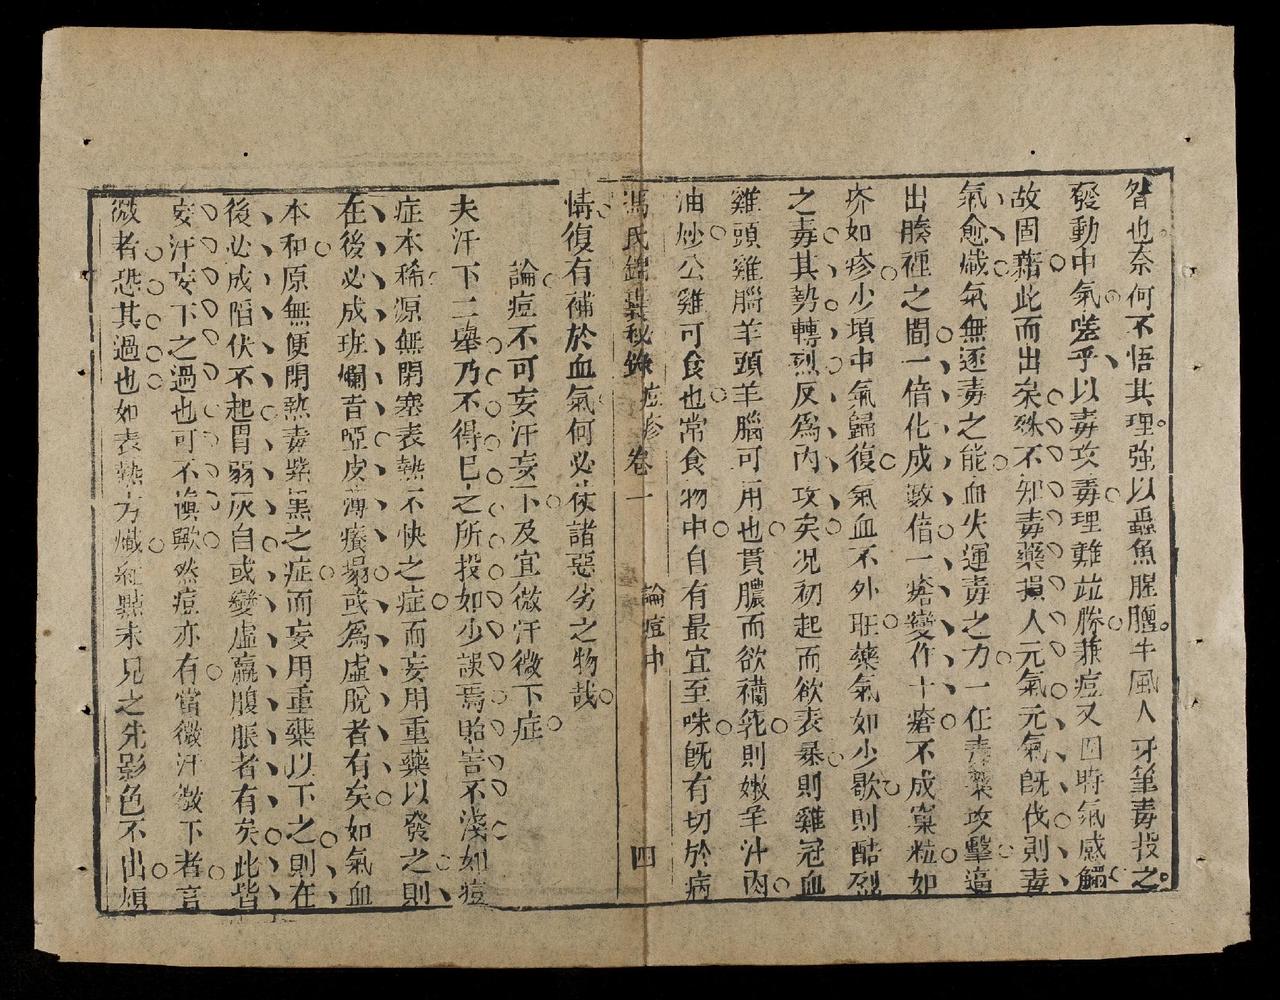 咎也奈何不悟其理強以蟲魚腥膻牛風人牙筆毒投之
發動中氣嗟乎以毒攻毒理難並勝兼痘又因時氣感觸
故固藉此而出矣殊不知毒藥損人元氣元氣既伐則毒
氣愈熾氣無逐毒之能血失運毒之力一任毒藥攻擊逼
出腠裡之間一倍化成數倍一瘡變作十瘡不成窠粒如
疥如疹少頃中氣歸復氣血不外旺藥氣如少歇則酷烈
之毒其勢轉烈反為內攻矣况初起而欲表暴則雞冠血
雞頭雞腦羊頭羊腦可用也貫膿而欲禣乾則嫩羊汁肉
油炒公雞可食也常食物中自有最宜至味既有切於病
馮氏錦囊秘錄 痘疹 卷一 論痘中 四
情復有補於血氣何必使諸惡劣之物哉
論痘不可妄汗妄下及宜微汗微下症
夫汗下二舉乃不得已之所投如少誤焉貽害不淺如痘
症本稀源無閉塞表熱不快之症而妄用重藥以發之則
在後必成班爛音啞皮薄癢塌或為虛脫者有矣如氣血
本和原無便閉熱毒紫黑之症而妄用重藥以下之則在
後必成陷伏不起胃弱灰白或變虛羸腹脹者有矣此皆
妄汗妄下之過也可不慎歟然痘亦有當微汗微下者言
微者恐其過也如表熱方熾紅點未見之先影色不出煩